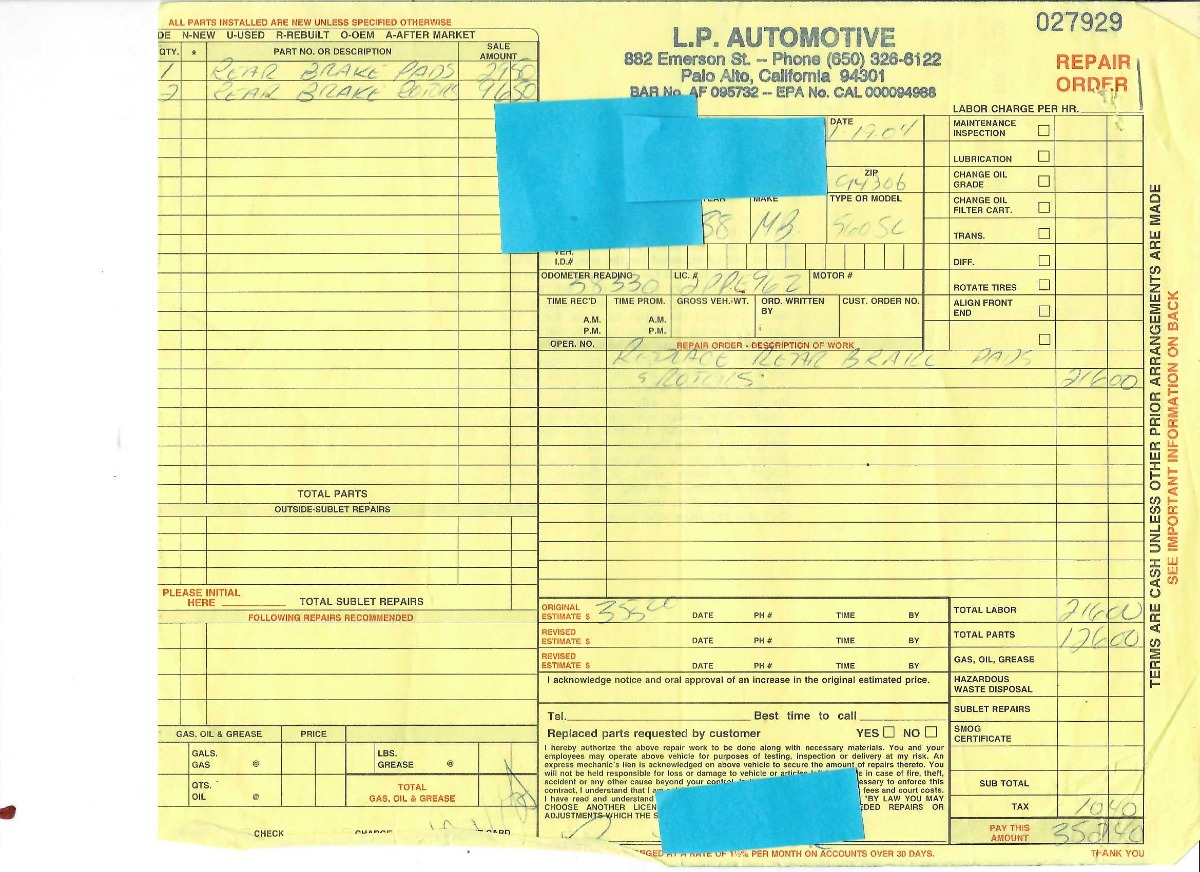 ALL PARTS INSTALLED ARE NEW UNLESS SPECIFIED OTHERWISE
DE N-NEW U-USED R-REBUILT O-OEM A-AFTER MARKET
QTY. * PART NO. OR DESCRIPTION SALE AMOUNT
1 REAR BRAKE PADS 2950
2 REAR BRAKE ROTORS 9650
TOTAL PARTS
OUTSIDE-SUBLET REPAIRS
PLEASE INITIAL
HERE TOTAL SUBLET REPAIRS
FOLLOWING REPAIRS RECOMMENDED
GAS, OIL & GREASE PRICE
GALS. GAS @ LBS. GREASE @
QTS. OIL @ TOTAL GAS, OIL & GREASE
CHECK CHARGE CARD
L.P. AUTOMOTIVE
882 Emerson St. -- Phone (650) 326-6122
Palo Alto, California 94301
BAR No. AF 095732 -- EPA No. CAL 000094988
027929
REPAIR
ORDER
LABOR CHARGE PER HR.
DATE
1-19-04
ZIP
94306
YEAR MAKE TYPE OR MODEL
88 MB 560SL
VEH. I.D.#
ODOMETER READING LIC. # MOTOR #
58330
TIME REC'D TIME PROM. GROSS VEH. WT. ORD. WRITTEN BY CUST. ORDER NO.
A.M. A.M.
P.M. P.M.
OPER. NO. REPAIR ORDER - DESCRIPTION OF WORK
REPLACE REAR BRAKE PADS
& ROTORS 21600
MAINTENANCE INSPECTION
LUBRICATION
CHANGE OIL GRADE
CHANGE OIL FILTER CART.
TRANS.
DIFF.
ROTATE TIRES
ALIGN FRONT END
ORIGINAL ESTIMATE $ 35500 DATE PH # TIME BY
REVISED ESTIMATE $ DATE PH # TIME BY
REVISED ESTIMATE $ DATE PH # TIME BY
I acknowledge notice and oral approval of an increase in the original estimated price.
Tel. Best time to call
Replaced parts requested by customer YES NO
I hereby authorize the above repair work to be done along with necessary materials. You and your
employees may operate above vehicle for purposes of testing, inspection or delivery at my risk. An
express mechanic's lien is acknowledged on above vehicle to secure the amount of repairs thereto. You
will not be held responsible for loss or damage to vehicle or articles in case of fire, theft,
accident or any other cause beyond your control. necessary to enforce this
contract, I understand that I am fees and court costs.
I have read and understand "BY LAW YOU MAY
CHOOSE ANOTHER REPAIRS OR
ADJUSTMENTS WHICH THE
AT A RATE OF 1½% PER MONTH ON ACCOUNTS OVER 30 DAYS.
TOTAL LABOR 21600
TOTAL PARTS 12600
GAS, OIL, GREASE
HAZARDOUS WASTE DISPOSAL
SUBLET REPAIRS
SMOG CERTIFICATE
SUB TOTAL
TAX 1040
PAY THIS AMOUNT 35240
THANK YOU
TERMS ARE CASH UNLESS OTHER PRIOR ARRANGEMENTS ARE MADE
SEE IMPORTANT INFORMATION ON BACK